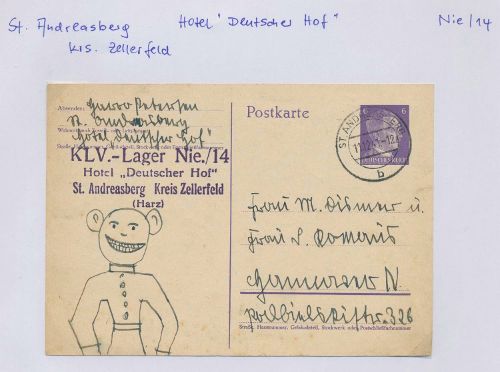 St. Andreasberg Hotel "Deutscher Hof" Nie/14
Krs. Zellerfeld
Absender: Harro Petersen
St. Andreasberg
"Hotel Deutscher Hof"
KLV.-Lager Nie./14
Hotel „Deutscher Hof"
St. Andreasberg Kreis Zellerfeld
(Harz)
Postkarte
6 6
DEUTSCHES REICH
ST ANDREASBERG
b
Frau M. Dismer u.
Frau L.
Hannover N.
Podbielskistr. 326
Straße, Hausnummer, Gebäudeteil, Stockwerk oder Postschließfachnummer